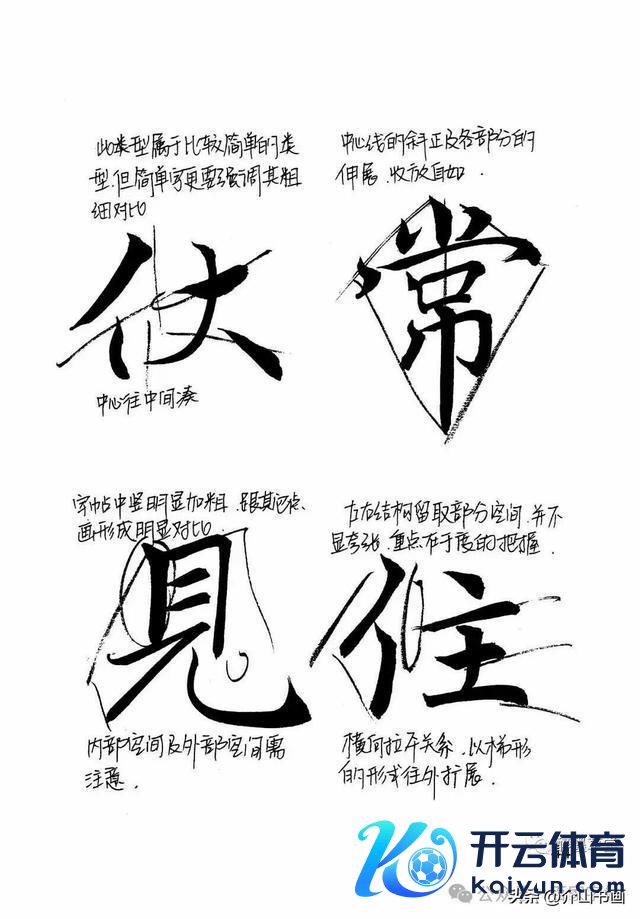 此类型属于比较简单的类
型，但简单字更要强调其粗
细对比
中心线的斜正及各部分的
伸展，收放自如．
仗
常
中心往中间凑
字帖中竖明显加粗，跟其它点、
画形成明显对比．
左右结构留取部分空间，并不
显夸张，重点在于度的把握．
見
住
内部空间及外部空间需
注意．
横向拉平关系，以梯形
的形式往外扩展．
开云体育
kaiyun.com
头条 @介山书画